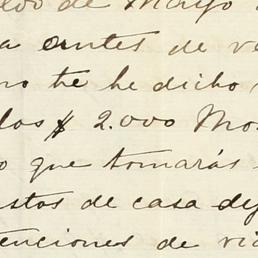 de Mayo
a antes de ve
no te he dicho
los $ 2.000 Mo
o que tomarás
stos de casa de
tenciones de vi